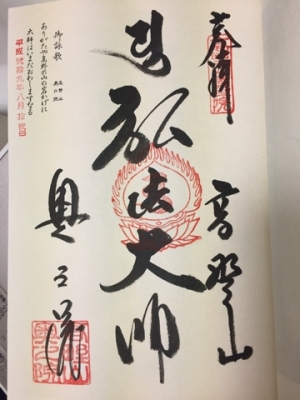 奉拝
高野山
弘法大師
奥之院
御詠歌
ありがたや高野の山の岩かげに
大師はいまだおわしますなる
平成弐拾九年八月拾弐日